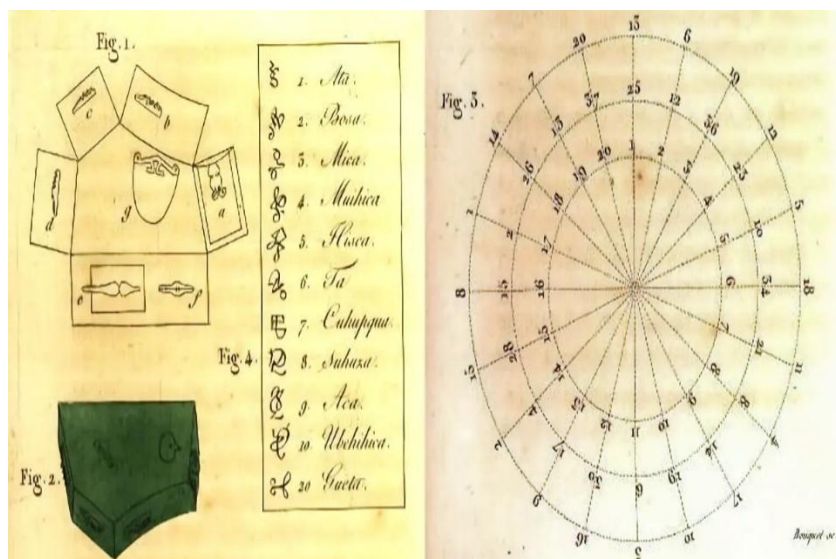 Fig. 1.
c
b
d
g
a
e
f
Fig. 2.
Fig. 4.
1. Ata.
2. Bosa.
3. Mica.
4. Muihica
5. Hisca.
6. Ta
7. Cuhupqua.
8. Suhuza.
9. Aca.
10. Ubchihica.
20 Gueta.
Fig. 3.
13 6 19 12 5 18 11 4 17 10 3 16 9 2 15 8 1 14 7 20
25 12 36 23 10 34 21 8 6 30 17 4 28 15 2 26 13 37
1 2 3 4 5 6 7 8 9 10 11 12 13 14 15 16 17 18 19 20
Bouquet